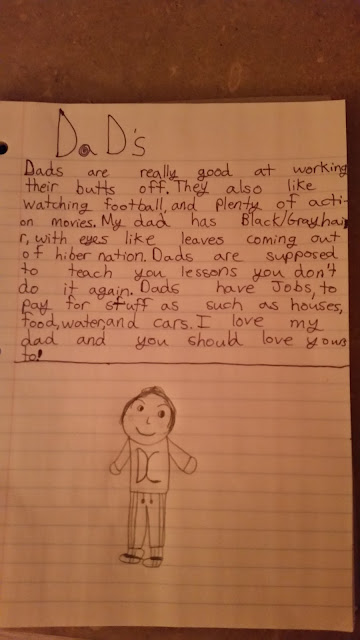 DaD's
Dads are really good at working
their butts off. They also like
watching football, and plenty of acti-
on movies. My dad has Black/Grayhair
r, with eyes like leaves coming out
of hiber nation. Dads are supposed
to teach you lessons you don't
do it again. Dads have Jobs, to
pay for stuff as such as houses,
food, water, and cars. I love my
dad and you should love yours
to!
DC